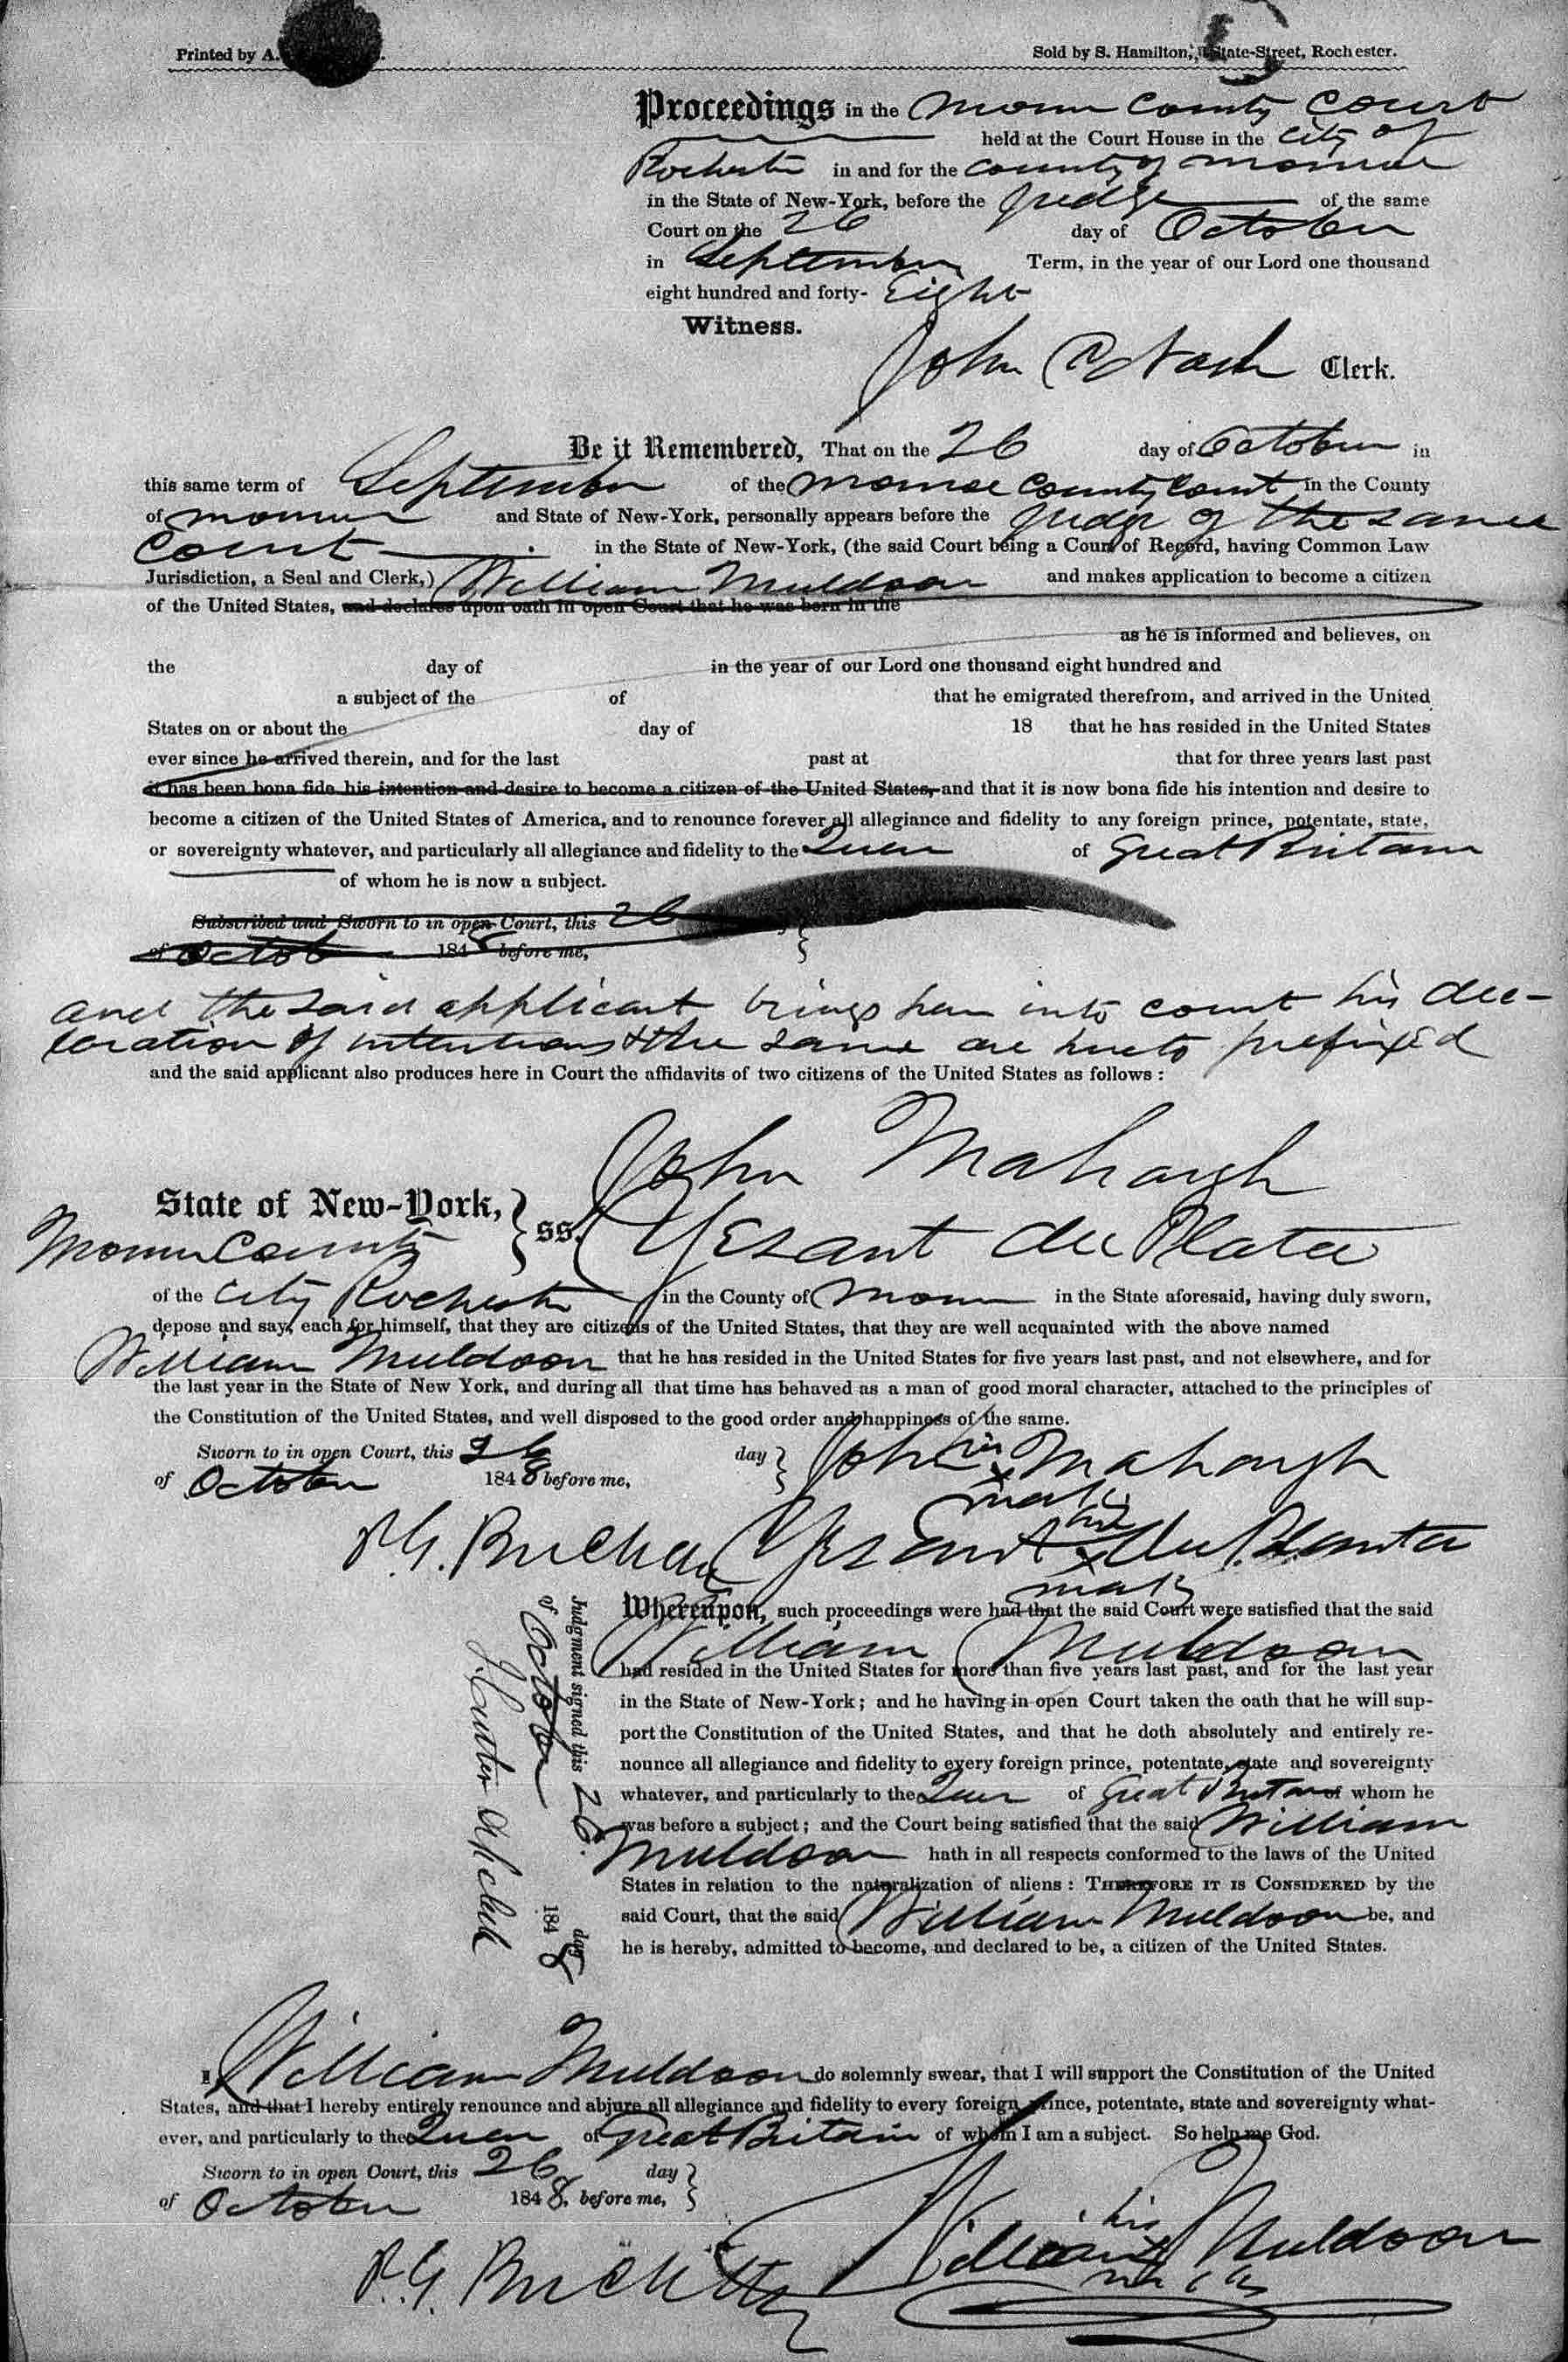 Printed by A.
Sold by S. Hamilton, State-Street, Rochester.
Proceedings in the Monroe County Court
held at the Court House in the City of
Rochester in and for the County of Monroe
in the State of New-York, before the Judge of the same
Court on the 26 day of October
in September Term, in the year of our Lord one thousand
eight hundred and forty- Eight
Witness.
John C Nash Clerk.
Be it Remembered, That on the 26 day of October in
this same term of September of the Monroe County Court in the County
of Monroe and State of New-York, personally appears before the Judge of the same
Court in the State of New-York, (the said Court being a Court of Record, having Common Law
Jurisdiction, a Seal and Clerk,) William Muldoon and makes application to become a citizen
of the United States, and declares upon oath in open Court that he was born in the
as he is informed and believes, on
the day of in the year of our Lord one thousand eight hundred and
a subject of the of that he emigrated therefrom, and arrived in the United
States on or about the day of 18 that he has resided in the United States
ever since he arrived therein, and for the last past at that for three years last past
it has been bona fide his intention and desire to become a citizen of the United States, and that it is now bona fide his intention and desire to
become a citizen of the United States of America, and to renounce forever all allegiance and fidelity to any foreign prince, potentate, state,
or sovereignty whatever, and particularly all allegiance and fidelity to the Queen of Great Britain
of whom he is now a subject.
Subscribed and Sworn to in open Court, this 26
of Octob 1848 before me,
and the said applicant brings here into court his dec-
laration of intentions & the same are hereto prefixed
and the said applicant also produces here in Court the affidavits of two citizens of the United States as follows :
John Mahargh
State of New-York, } ss.
Monroe County
of the City Rochester in the County of Monroe in the State aforesaid, having duly sworn,
depose and say, each for himself, that they are citizens of the United States, that they are well acquainted with the above named
William Muldoon that he has resided in the United States for five years last past, and not elsewhere, and for
the last year in the State of New York, and during all that time has behaved as a man of good moral character, attached to the principles of
the Constitution of the United States, and well disposed to the good order and happiness of the same.
Sworn to in open Court, this 26 day } John his x mark Mahargh
of October 1848 before me,
P. G. Buchan his x mark
Judgment signed this 26. day
of October 1848
Whereupon, such proceedings were had that the said Court were satisfied that the said
William Muldoon
had resided in the United States for more than five years last past, and for the last year
in the State of New-York; and he having in open Court taken the oath that he will sup-
port the Constitution of the United States, and that he doth absolutely and entirely re-
nounce all allegiance and fidelity to every foreign prince, potentate, state and sovereignty
whatever, and particularly to the Queen of Great Britain of whom he
was before a subject; and the Court being satisfied that the said William
Muldoon hath in all respects conformed to the laws of the United
States in relation to the naturalization of aliens : THEREFORE IT IS CONSIDERED by the
said Court, that the said William Muldoon be, and
he is hereby, admitted to become, and declared to be, a citizen of the United States.
I William Muldoon do solemnly swear, that I will support the Constitution of the United
States, and that I hereby entirely renounce and abjure all allegiance and fidelity to every foreign prince, potentate, state and sovereignty what-
ever, and particularly to the Queen of Great Britain of whom I am a subject. So help me God.
Sworn to in open Court, this 26 day }
of October 1848, before me,
P. G. William his mark Muldoon